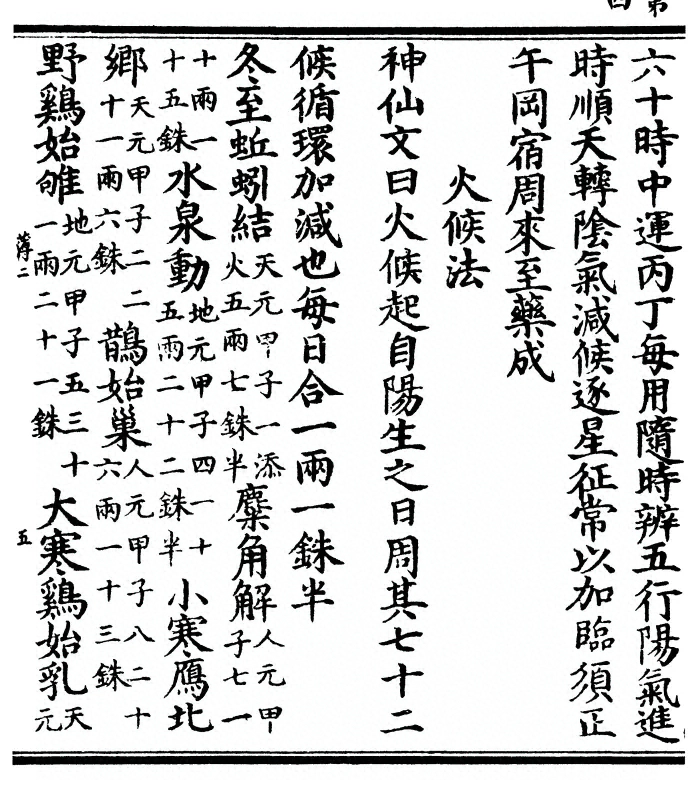 六十時中運丙丁每用隨時辨五行陽氣進
時順天轉陰氣減候逐星征常以加臨須正
午岡宿周來至藥成
火候法
神仙文曰火候起自陽生之日周其七十二
候循環加減也每日合一兩一銖半
冬至蚯蚓結天元甲子一添火五兩七銖半麋角解人元甲子七一
十兩一十五銖水泉動地元甲子四一十五兩二十二銖半小寒鴈北
鄉天元甲子二二十一兩六銖鵲始巢人元甲子八二十六兩一十三銖
野鷄始雊地元甲子五三十一兩二十一銖大寒鷄始乳天元
薄二
五